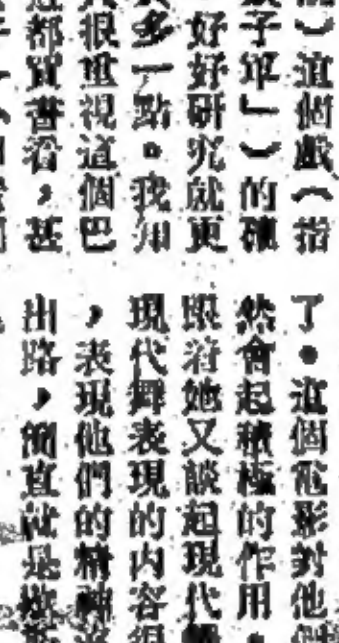 ）這個戲（指
子軍」）的確
好好研究就更
多一點。我知
很重視這個巴
都買書看，甚
了。這個電影對他
然會起積極的作用，
跟着她又談起現代舞
現代舞表現的内容很
，表現他們的精神
出路，簡直就是